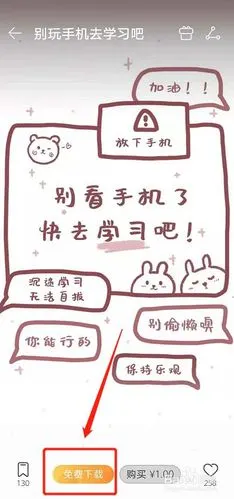 别玩手机去学习吧
加油！！
放下手机
别看手机了
快去学习吧！
沉迷学习
无法自拔
别偷懒呗
你能行的
保持乐观
130
免费下载
购买 ¥1.00
258